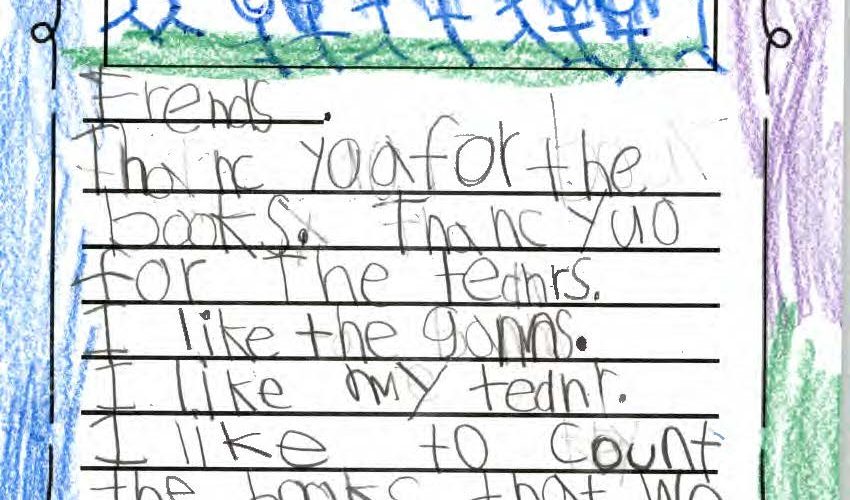 Frends
Thanc yoa for the
books. Thanc yuo
for The teahrs.
I like the gomns.
I like my teahr.
I like to count
the books that we